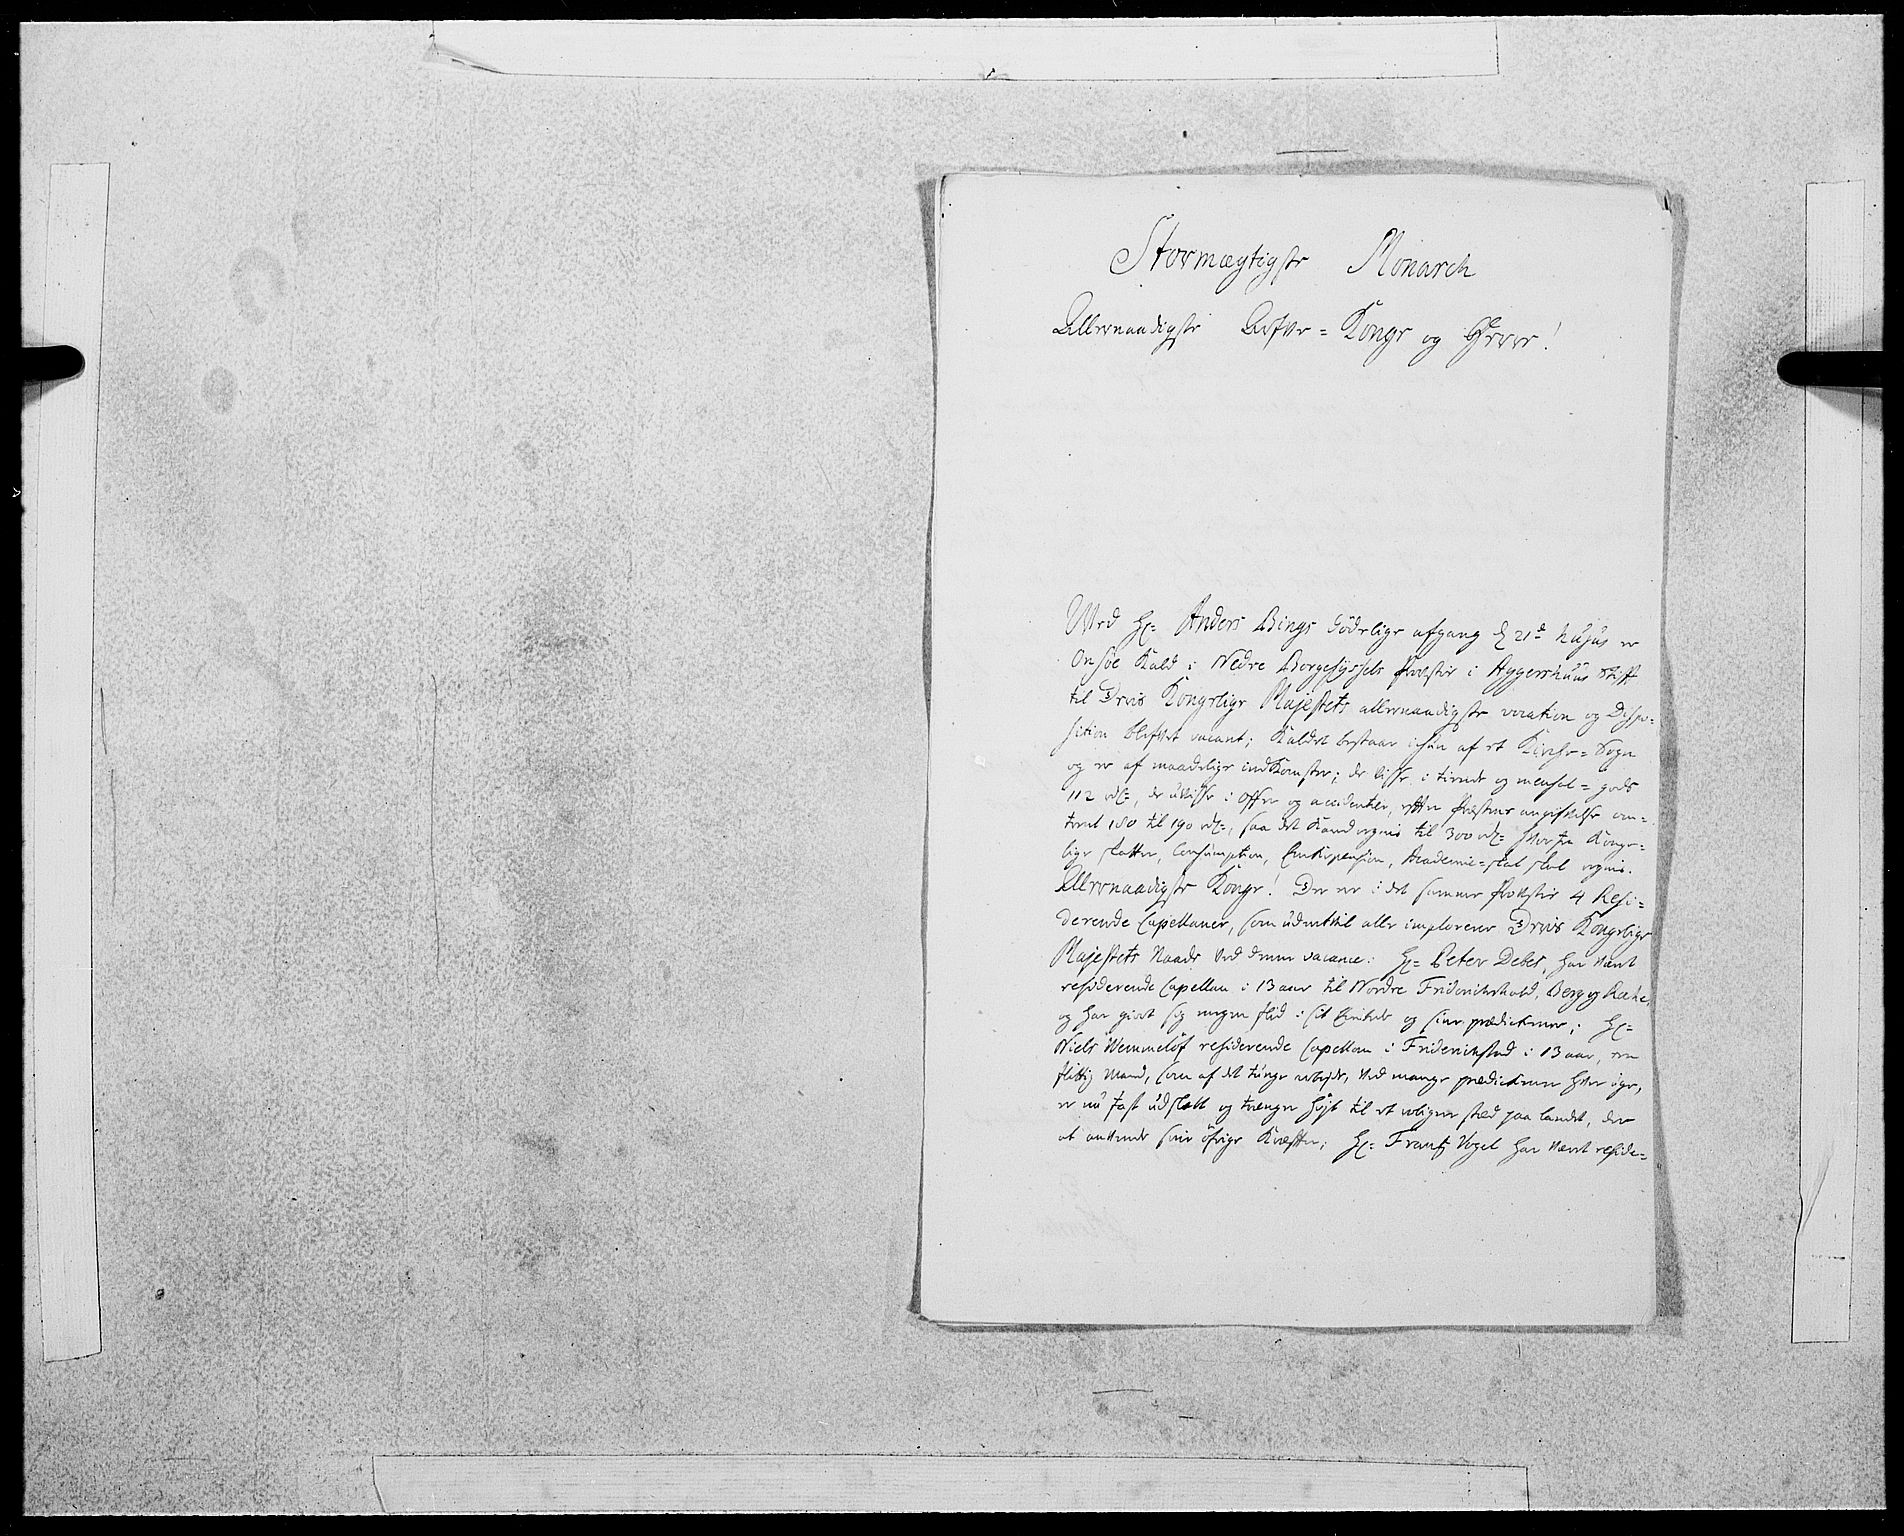 Stormægtigste Monarch
Allernaadigste Arfve-Konge og Herre!
Ved Hr: Anders Bings dödelige afgang d 21de hujus er
Onsöe Kald i Nedre Borgesyssels Provstie i Aggerhuus Stift
til Deris Kongelige Majestets allernaadigste vocation og Dispo-
sition blefvet vacant; Kaldet bestaar ichun af et Kirche-Sogn
og er af maadelige indkomster; de visse i tiende og mensal-gods
112 rdr, de uvisse i offer og accidentier, efter Præstens angifvelse om-
trent 180 til 190 rdr, saa det Kand regnis til 300 rdr hvor fra Konge-
lige skatter, Consumption, Enkepension, Academie-skat skal regnis.
Allernaadigste Konge! Der er i det samme Provstie 4 Resi-
derende Capellaner, som udentvil alle implorerer Deris Kongelige
Majestets Naade ved denne vacance: Hr: Peter Debes, har været
residerende Capellan i 13 aar til Nordre Friderichshald, Berg og Rokke,
og har giort sig megen flid i sit Embede og sine prædickener; Hr:
Niels Wemmelöf residerende Capellan i Friderichstad i 13 aar, een
flittig Mand, som af det tunge arbeyde, ved mange prædickener hver uge,
er nu fast udslætt og trænger høyt til et roligere stæd paa landet, der
at anvende sine öfrige Kræfter; Hr: Frantz Vogel har været reside-